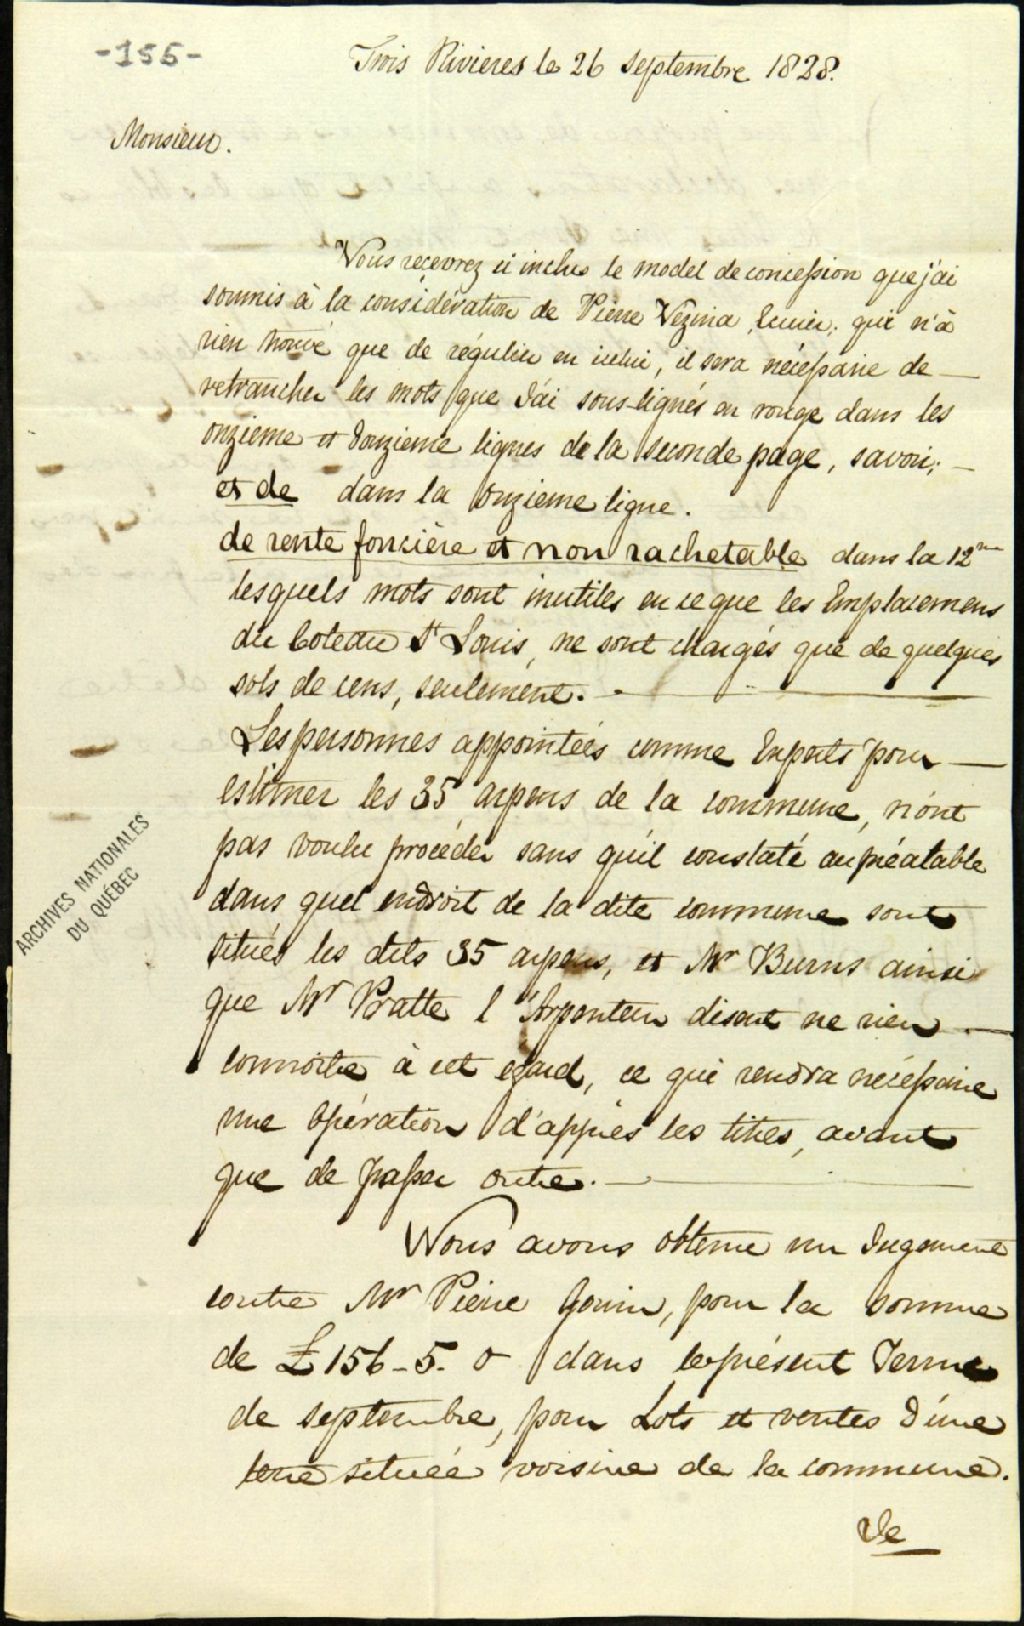 -155-
Trois Rivieres le 26 Septembre 1828.
Monsieur.
Vous recevrez ci inclus le model de concession que j'ai
soumis à la considération de Pierre Vezina Ecuier, qui n'à
rien trouvé que de régulier en icelui, il sera nécessaire de —
retrancher les mots que J'ai sous-lignés en rouge dans les
onzieme et douzieme lignes de la seconde page, savoir; —
et de dans la onzieme ligne.
de rente foncière et non rachetable dans la 12me
lesquels mots sont inutiles en ce que les Emplacemens
du Coteau St Louis, ne sont chargés que de quelques
sols de cens, seulement. —
Les personnes appointées comme Experts pour —
estimer les 35 arpens de la commune, n'ont
pas voulu procéder sans qu'il constaté au préalable
dans quel endroit de la dite commune sont
situés les dits 35 arpens, et Mr Burns ainsi
que Mr Pratte l'Arpenteur disent ne rien —
connoitre à cet egard, ce qui rendra nécessaire
une Opération d'apprès les titres, avant
que de passer outre. —
Nous avons obtenu un Jugement
contre Mr Pierre Gouin, pour la somme
de £156-5. 0 dans le présent Terme
de septembre, pour Lots et ventes d'une
terre située voisine de la commune.
De
ARCHIVES NATIONALES
DU QUÉBEC